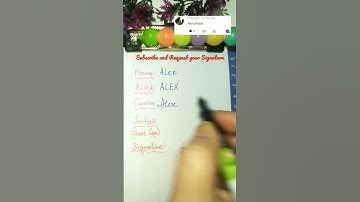 Alex please
Subscribe and Request your Signature
Name: Alex
Block: ALEX
Cursive: Alex
Initials:
(Short Sign)
Signature